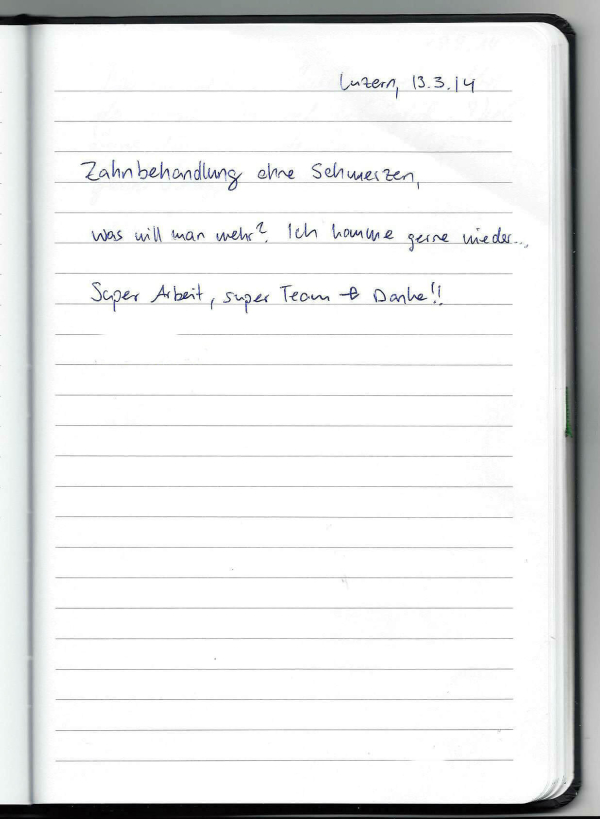 Luzern, 13.3.14
Zahnbehandlung ohne Schmerzen,
was will man mehr? Ich komme gerne wieder...
Super Arbeit, super Team → Danke!!